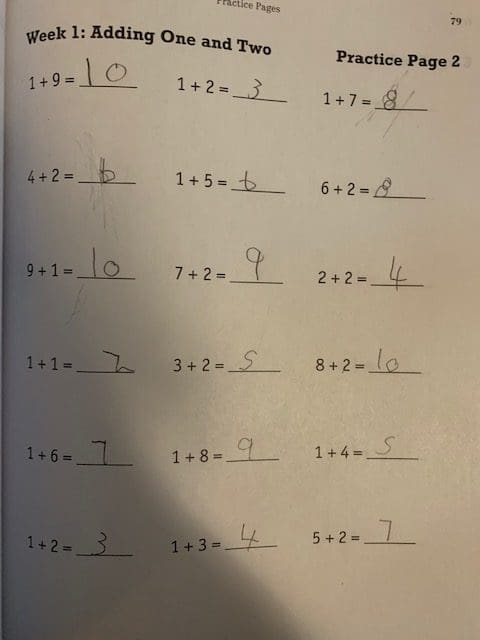 Practice Pages
79
Week 1: Adding One and Two
Practice Page 2
1 + 9 = 10 1 + 2 = 3 1 + 7 = 8
4 + 2 = 6 1 + 5 = 6 6 + 2 = 8
9 + 1 = 10 7 + 2 = 9 2 + 2 = 4
1 + 1 = 2 3 + 2 = 5 8 + 2 = 10
1 + 6 = 7 1 + 8 = 9 1 + 4 = 5
1 + 2 = 3 1 + 3 = 4 5 + 2 = 7